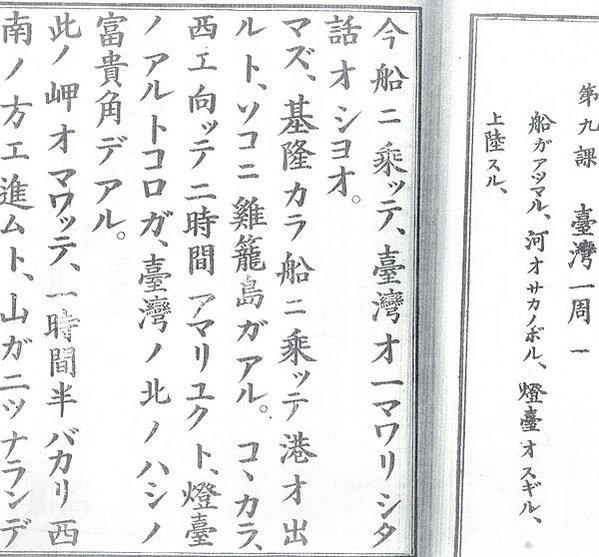 第九課 臺灣一周 一
船ガアツマル、河オサカノボル、燈臺オスギル、
上陸スル、
今船ニ乘ッテ、臺灣オ一マワリシタ
話オシヨオ。
マズ、基隆カラ船ニ乘ッテ港オ出
ルト、ソコニ雞籠島ガアル。コヽカラ、
西エ向ッテ二時間アマリユクト、燈臺
ノアルトコロガ、臺灣ノ北ノハシノ
富貴角デアル。
此ノ岬オマワッテ、一時間半バカリ西
南ノ方エ進ムト、山ガ二ツナランデ